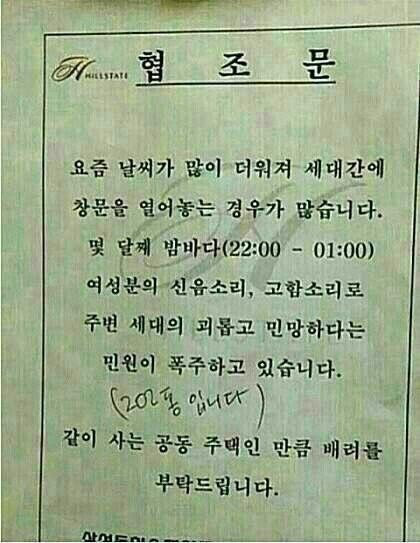 HILLSTATE
협 조 문
요즘 날씨가 많이 더워져 세대간에
창문을 열어놓는 경우가 많습니다.
몇 달째 밤바다(22:00 - 01:00)
여성분의 신음소리, 고함소리로
주변 세대의 괴롭고 민망하다는
민원이 폭주하고 있습니다.
(202동 입니다)
같이 사는 공동 주택인 만큼 배려를
부탁드립니다.